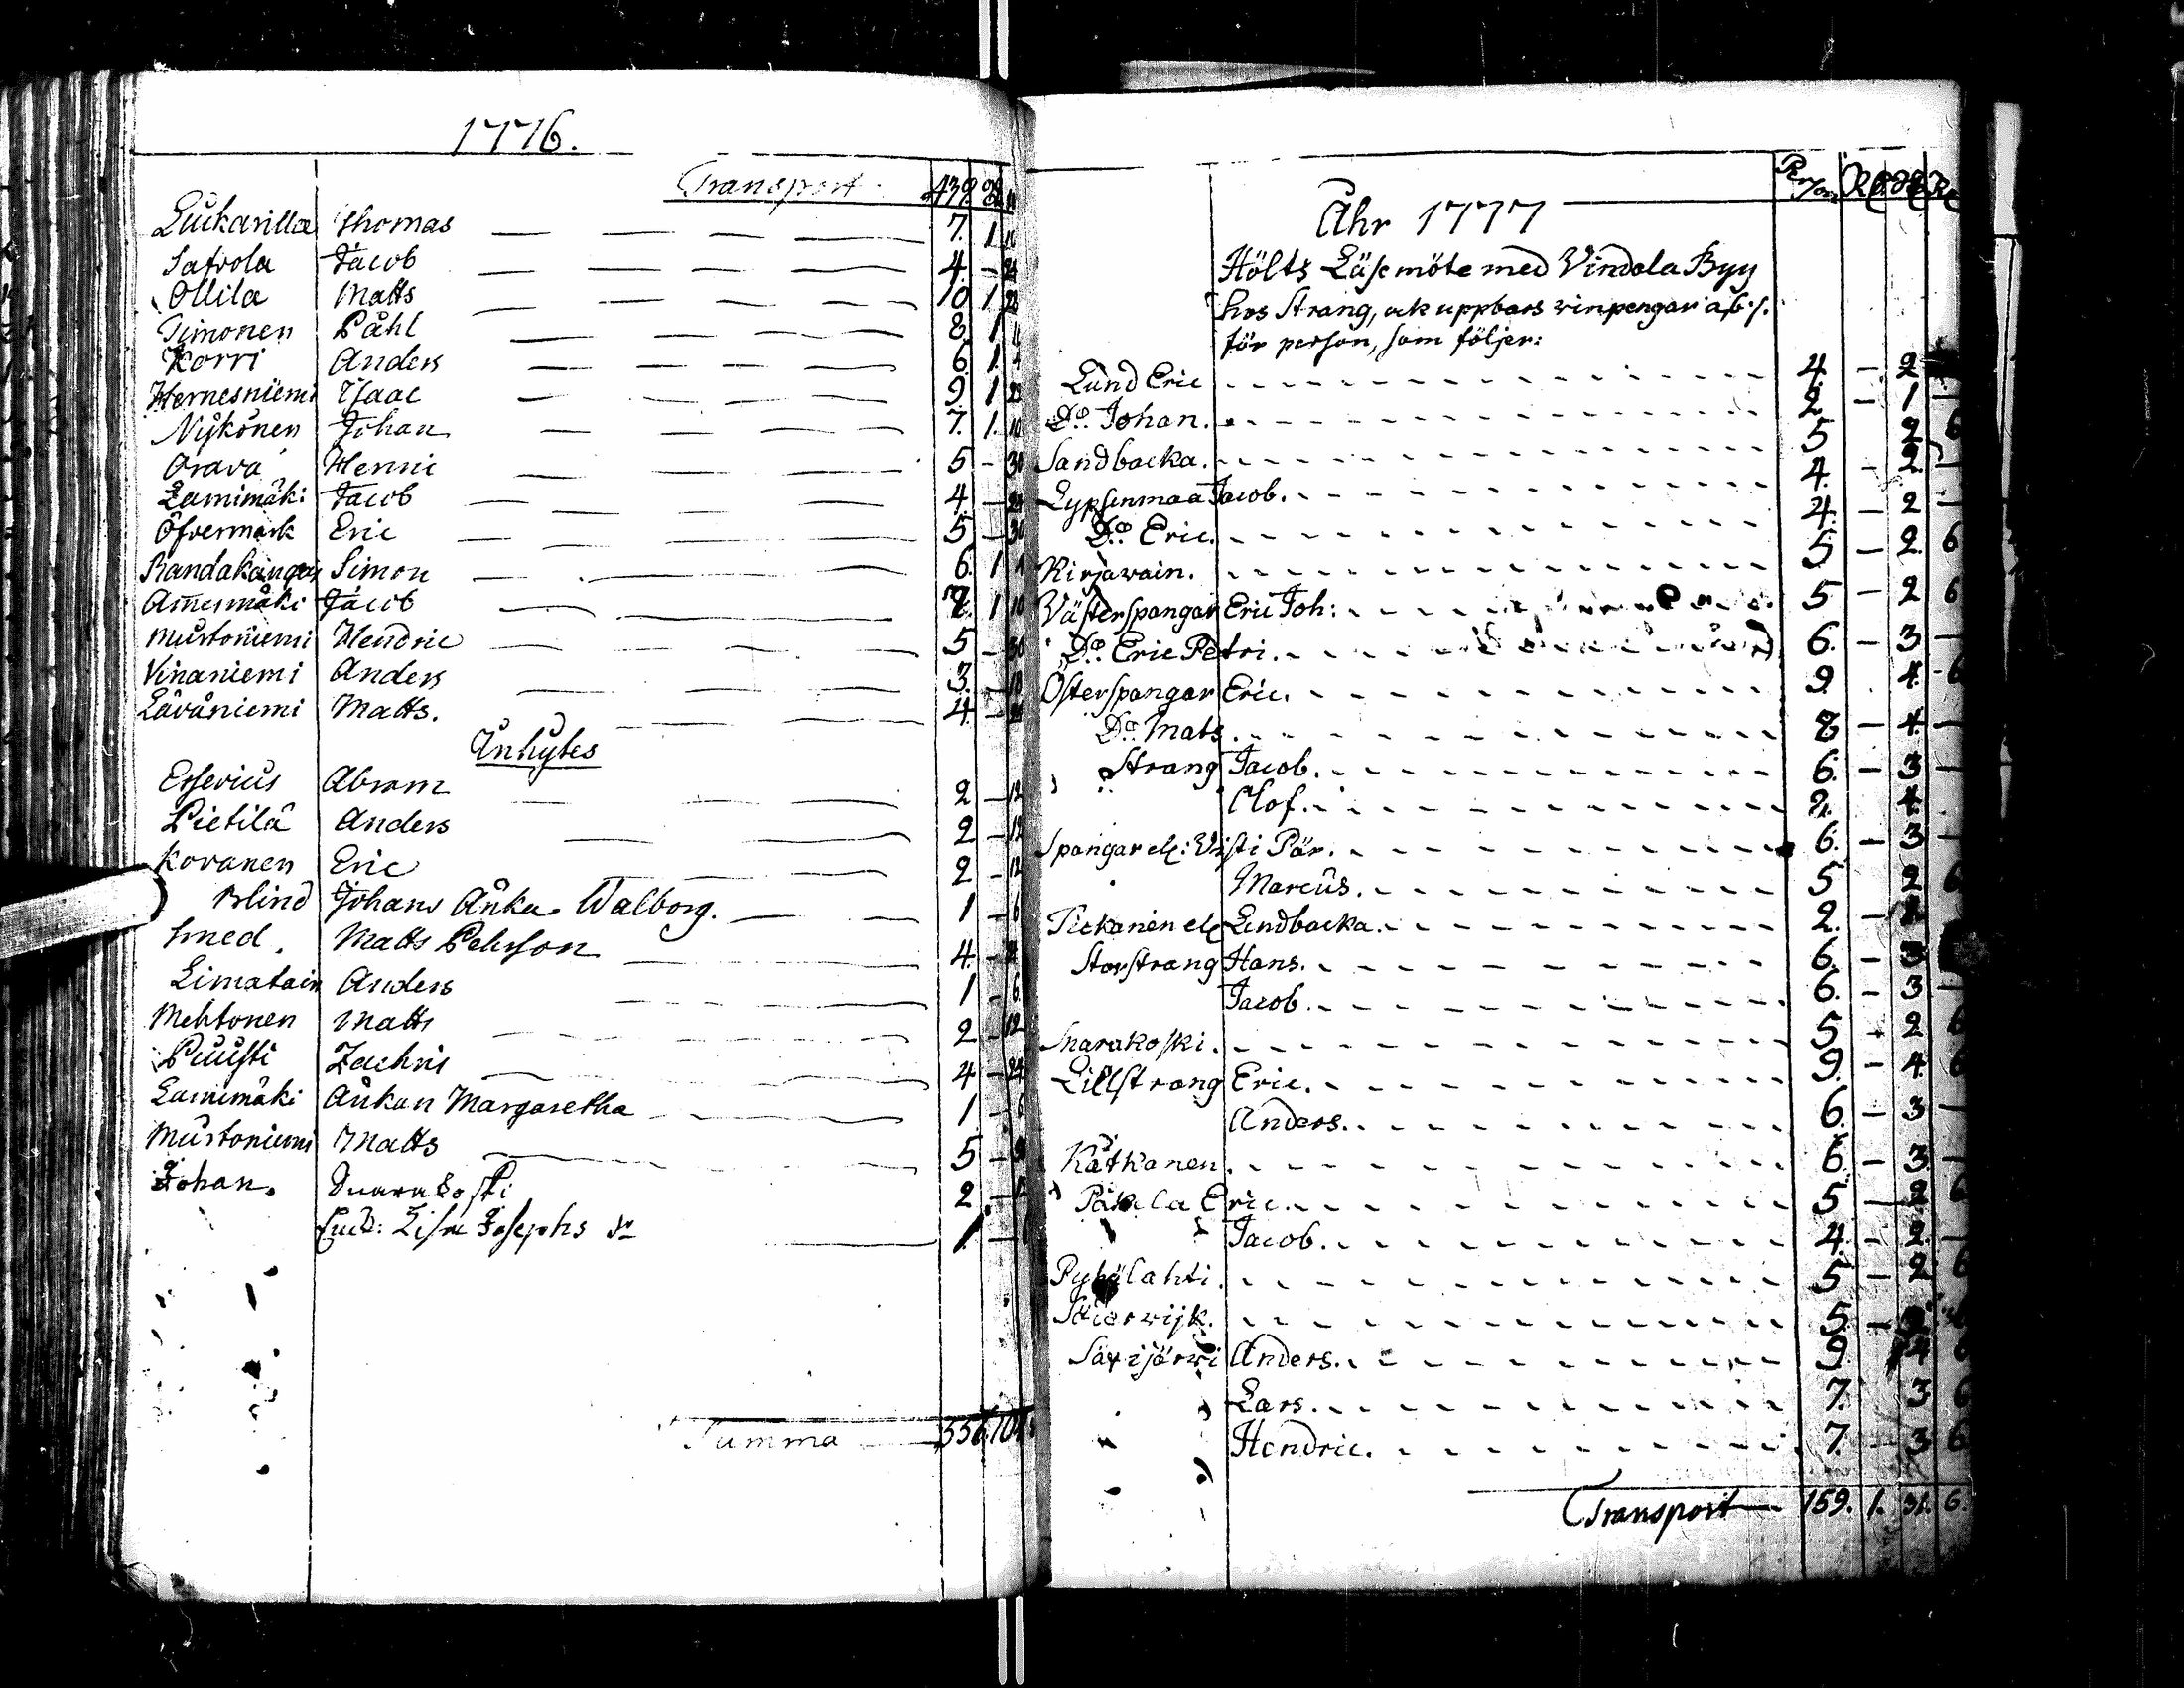 1776.
Transport 439
Luckarilla Thomas 7. 1
Jafvola Jacob 4. -
Ollila Matts 10 1
Timonen Påhl 8. 1
Korri Anders 6. 1
Hernesniemi Isaac 9 1
Nÿkönen Johan 7. 1. 10
Orava Henric 5 - 30
Lamimäki Jacob 4 - 24
Öfvermark Eric 5 - 30
Randakangas Simon 6. 1 4
Jacob 7. 1 10
Mustoniemi Hendric 5 - 30
Vinaniemi Anders 3. - 18
Låvåniemi Matts. 4 - 24
Inhyses
Abram 2 - 12
Pietilä Anders 2 - 12
Kovanen Eric 2 - 12
Blind Johans Änka Walborg. 1 - 6
Smed. Matts Pehrson 4. -
Limatain Anders 1 - 6
Mehtonen Matts 2 - 12
Puusti Zachris 4 - 24
Lamimäki Änkan Margaretha 1 - 6
Mustoniemi Matts 5 - 30
Johan. Snarakoski 2 - 12
Lisa Josephs dr 1. -
Summa 556.
Person
Åhr 1777
Hölts Läsemöte med Vindala Byy
hos Strang, ock uppbars vinpengar
för person, som följer:
Lund Eric 4. - 2 -
Do. Johan. 2. - 1 -
Sandbacka. 5 2 6
Lypsenmaa Jacob. 4. - 2 -
Do. Eric. 4. - 2 -
Kirjavain. 5 - 2. 6
Västerspangar Eric Joh: 5 - 2 6
Do. Eric Petri. 6. - 3 -
Österspangar Eric. 9. 4. 6
Do. Mats. 8 - 4. -
Strang Jacob. 6. - 3 -
Olof. 2.
Spangar el: Visti Pär. 6. - 3 -
Marcus. 5 2 6
el Lindbacka. 2. -
Storstrang Hans. 6. - 3
Jacob. 6. - 3 -
Snarakoski. 5 - 2 6
Lillstrang Eric. 9. - 4. 6
Anders. 6. - 3 -
Kätkänen. 6. - 3 -
Eric. 5 - 2 6
Jacob. 4. - 2. -
Pyhälahti. 5 - 2. 6
5. -
Säxijärvi Anders. 9. 4 6
Lars. 7. 3 6
Hendric. 7. - 3 6
Transport 159. 1. 31. 6.